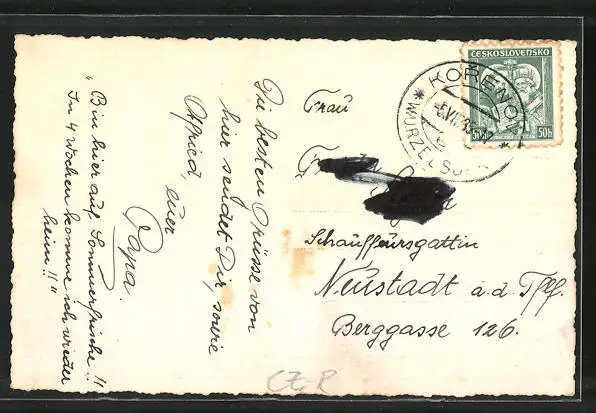 Die besten Grüsse von
hier sendet Dir, sowie
Otfried, euer
Papa.
"Bin hier auf Sommerfrische!!
In 4 Wochen komme ich wieder
heim!!"
Frau
Schauffeursgattin
Neustadt a.d. Tffl.
Berggasse 126.
ČESKOSLOVENSKO
50h 50h
KOŘENOV
WURZELSD
CZ-R